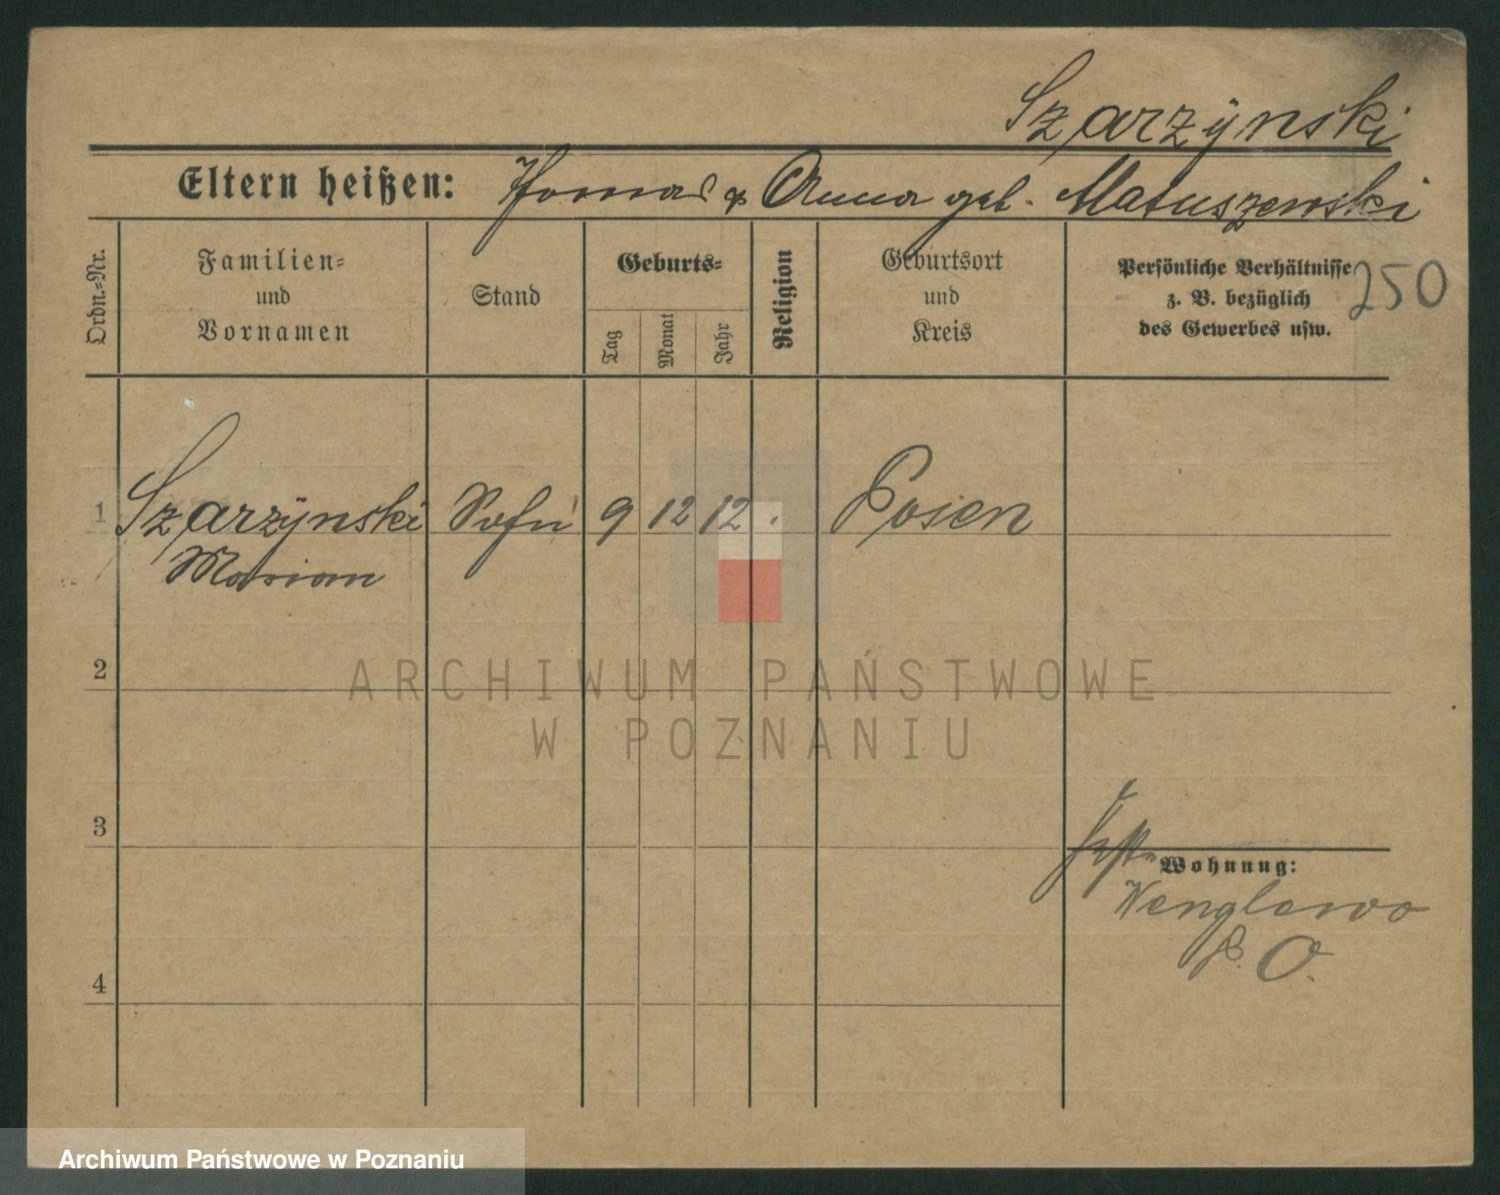 Szarzÿnski
Eltern heißen: Thomas & Anna geb. Matuszewski
Ordn.-Nr.
Familien-
und
Vornamen
Stand
Geburts-
Tag
Monat
Jahr
Religion
Geburtsort
und
Kreis
Persönliche Verhältnisse
z. B. bezüglich
des Gewerbes usw.
250
1 Szarzÿnski 9 12 12. Posen
Marian
2
ARCHIWUM PAŃSTWOWE
W POZNANIU
3
Wohnung:
4
Archiwum Państwowe w Poznaniu